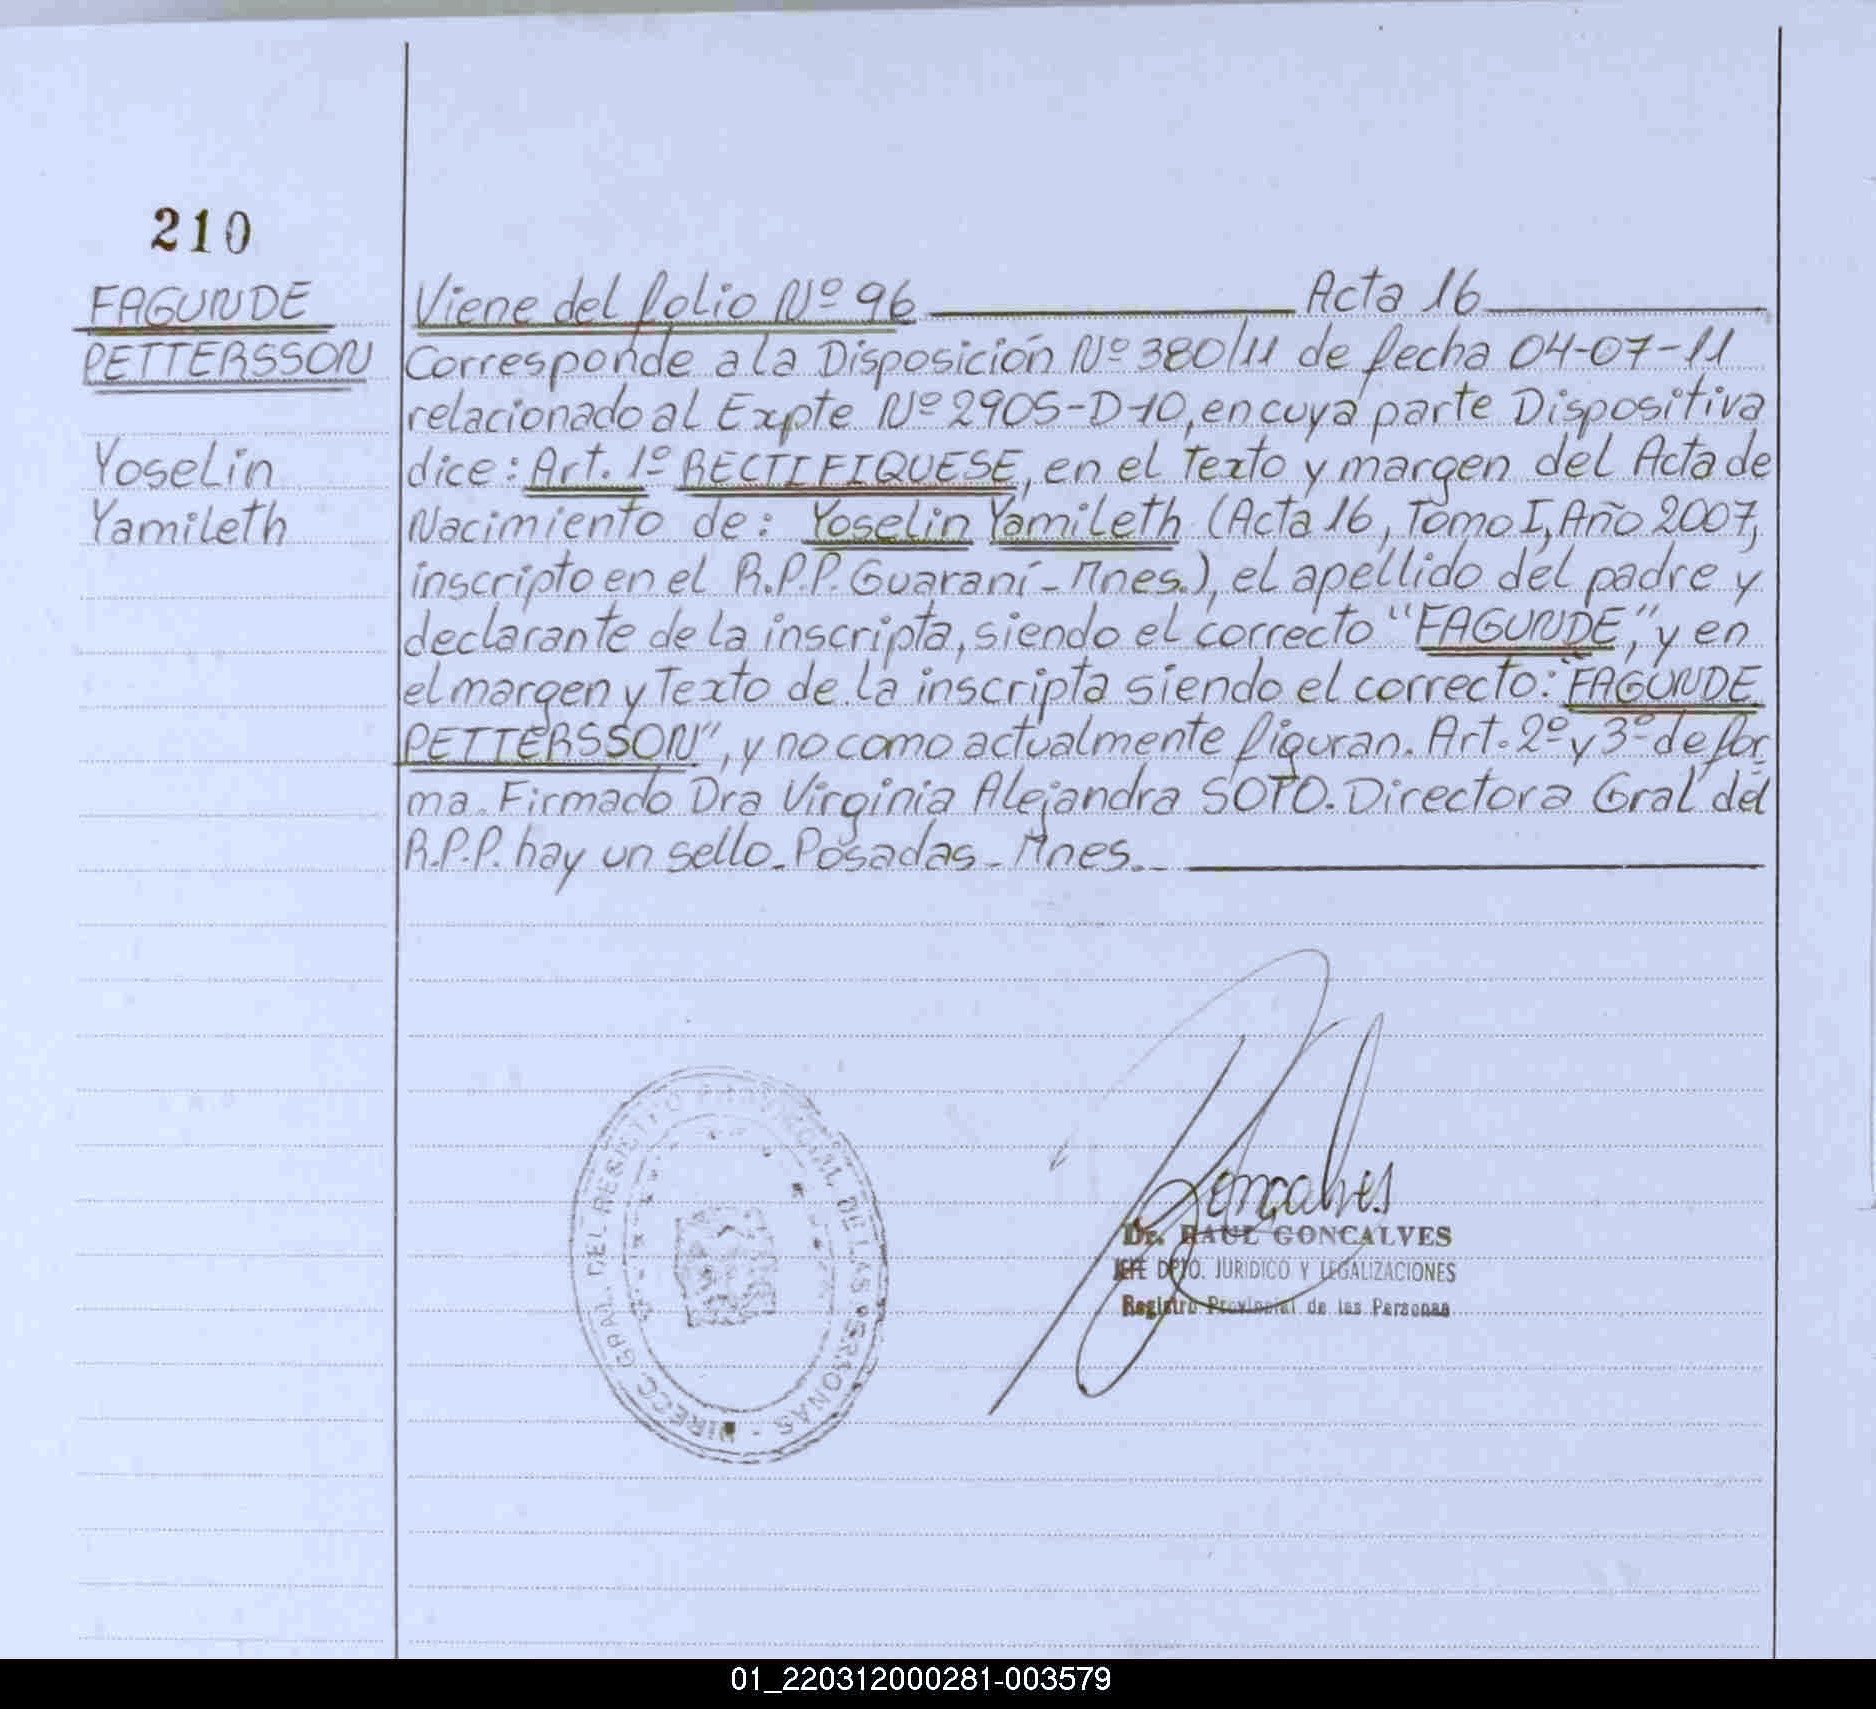 210
FAGUNDE
PETTERSSON
Yoselin
Yamileth
Viene del folio Nº 96 Acta 16
Corresponde a la Disposición Nº 380/11 de fecha 04-07-11
relacionado al Expte Nº 2905-D-10, en cuya parte Dispositiva
dice: Art. 1º RECTIFIQUESE, en el Texto y margen del Acta de
Nacimiento de: Yoselin Yamileth (Acta 16, Tomo I, Año 2007,
inscripto en el R.P.P. Guaraní - Mnes.), el apellido del padre y
declarante de la inscripta, siendo el correcto "FAGUNDE," y en
el margen y Texto de la inscripta siendo el correcto: "FAGUNDE
PETTERSSON", y no como actualmente figuran. Art. 2º y 3º de for-
ma. Firmado Dra Virginia Alejandra SOTO. Directora Gral del
R.P.P. hay un sello - Posadas - Mnes.-
DIRECC. GRAL. DEL REGISTRO PROVINCIAL DE LAS PERSONAS -
Goncalves
Dr. RAUL GONCALVES
JEFE DPTO. JURIDICO Y LEGALIZACIONES
Registro Provincial de las Personas
01_220312000281-003579